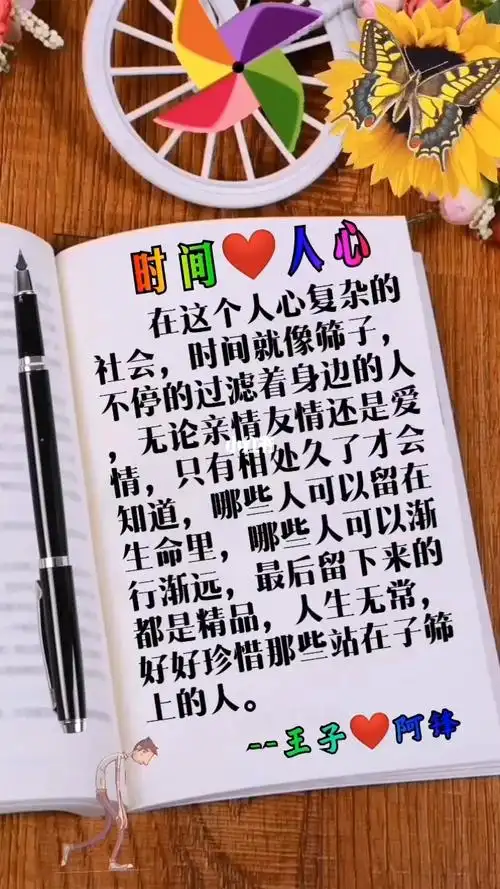 时间❤人心
在这个人心复杂的
社会，时间就像筛子，
不停的过滤着身边的人
，无论亲情友情还是爱
情，只有相处久了才会
知道，哪些人可以留在
生命里，哪些人可以渐
行渐远，最后留下来的
都是精品，人生无常，
好好珍惜那些站在子筛
上的人。
--王子❤阿锋